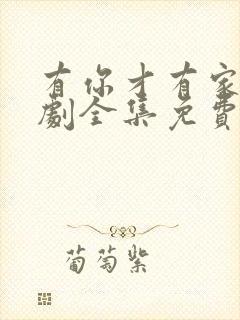 有你才有家
劇全集免費
葡萄紫